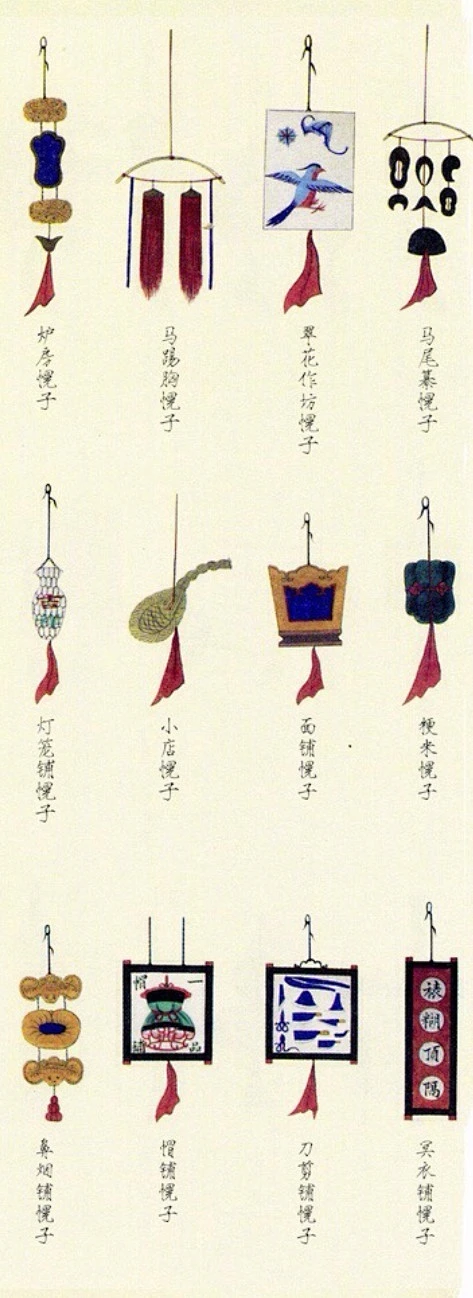 炉房幌子
马踢胸幌子
翠花作坊幌子
马尾纂幌子
灯笼铺幌子
小店幌子
面铺幌子
粳米幌子
一品
帽舖
裱糊頂隔
鼻烟铺幌子
帽铺幌子
刀剪铺幌子
冥衣铺幌子